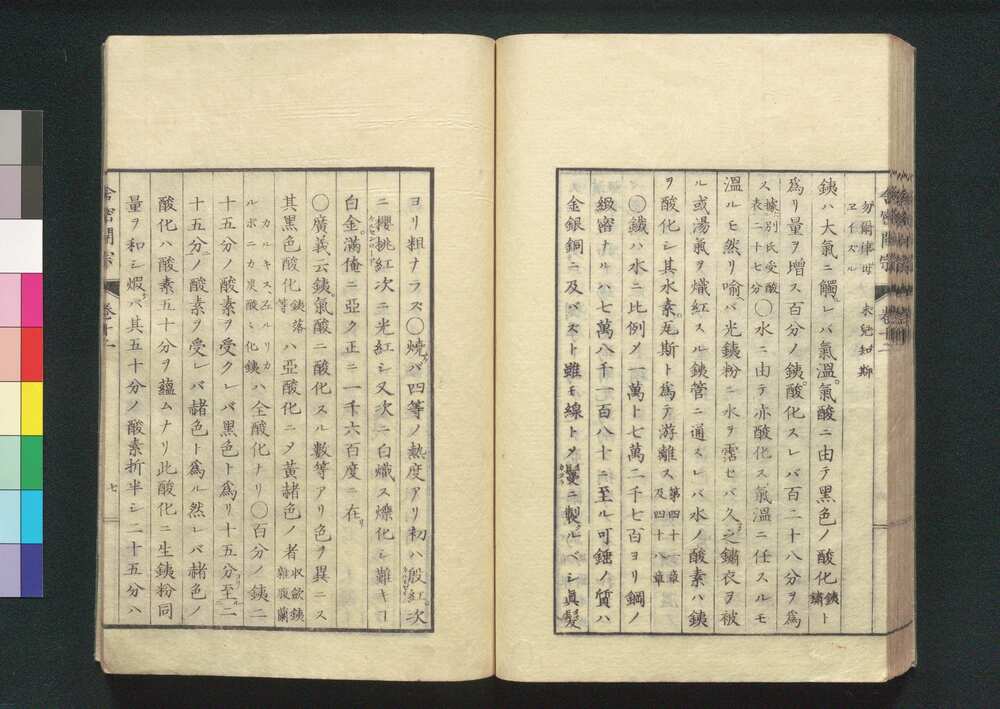 勿爾律母 未兒知斯
ヱイズル
銕ハ大氣ニ觸レバ氣溫氣酸ニ由テ黑色ノ酸化銕鏽ト
爲リ量ヲ增ス百分ノ銕酸化スレバ百二十八分ヲ爲
ス據別氏受酸表二十七分〇水ニ由テ亦酸化ス氣溫ニ任スルモ
溫ルモ然リ喩バ光銕粉ニ水ヲ霑セバ久之鏽衣ヲ被
ル或湯氣ヲ熾紅スル銕管ニ通スレバ水ノ酸素ハ銕
ヲ酸化シ其水素瓦斯ト爲テ游離ス第四十一章及四十八章
〇鐵ハ水ニ比例メ一萬ト七萬二千七百ヨリ鋼ノ
緻密ナルハ七萬八千一百八十ニ至ル可鍾ノ質ハ
金銀銅ニ及バズト雖モ線トメ製ルベシ眞髮
ヨリ粗ナラス〇燒バ四等ノ熱度アリ初ハ殷紅次
ニ櫻桃紅次ニ光紅シ又次ニ白熾ス爍化シ難キコ
白金滿俺ニ亞ク正ニ一千六百度ニ在リ
〇廣義云銕氣酸ニ酸化スル數等アリ色ヲ異ニス
其黑色酸化銕落等ハ亞酸化ニメ黃赭色ノ者収歛銕雜腹蘭
カルキスヱルリカルボニカ炭酸シ化銕ハ全酸化ナリ〇百分ノ銕二
十五分ノ酸素ヲ受クレバ黑色ト爲リ十五分至二
十五分ノ酸素ヲ受レバ赭色ト爲ル然レバ赭色ノ
酸化ハ酸素五十分ヲ蘊ムナリ此酸化ニ生銕粉同
量ヲ和シ煆バ其五十分ノ酸素折半シ二十五分ハ
舍密開宗 卷十二
七